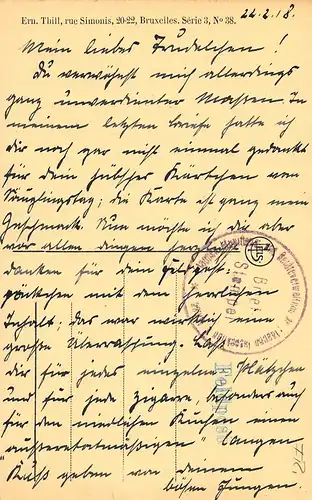 Ern. Thill, rue Simonis, 20-22, Bruxelles. Série 3, No 38.
24.2.18.
Mein liebes Trudelchen!
Du verwöhnst mich allerdings
ganz unverdienter Maßen. In
meinem letzten Briefe hatte ich
dir noch gar nicht einmal gedankt
für dein hübsches Kärtchen vom
Säuglingstag; die Karte ist ganz mein
Geschmack. Nun möchte ich dir aber
vor allen dingen herzlichst
danken für dein Feldpost-
päckchen mit dem herrlichen
Inhalt; das war wirklich eine
große Überraschung. Laß
dir für jedes einzelne Plätzchen
und für jede Zigarre, besonders auch
für den niedlichen Kuchen einen
"außeretatmäßigen" langen
Kuß geben von deinem
bösen Jungen.
Brief
Stempel